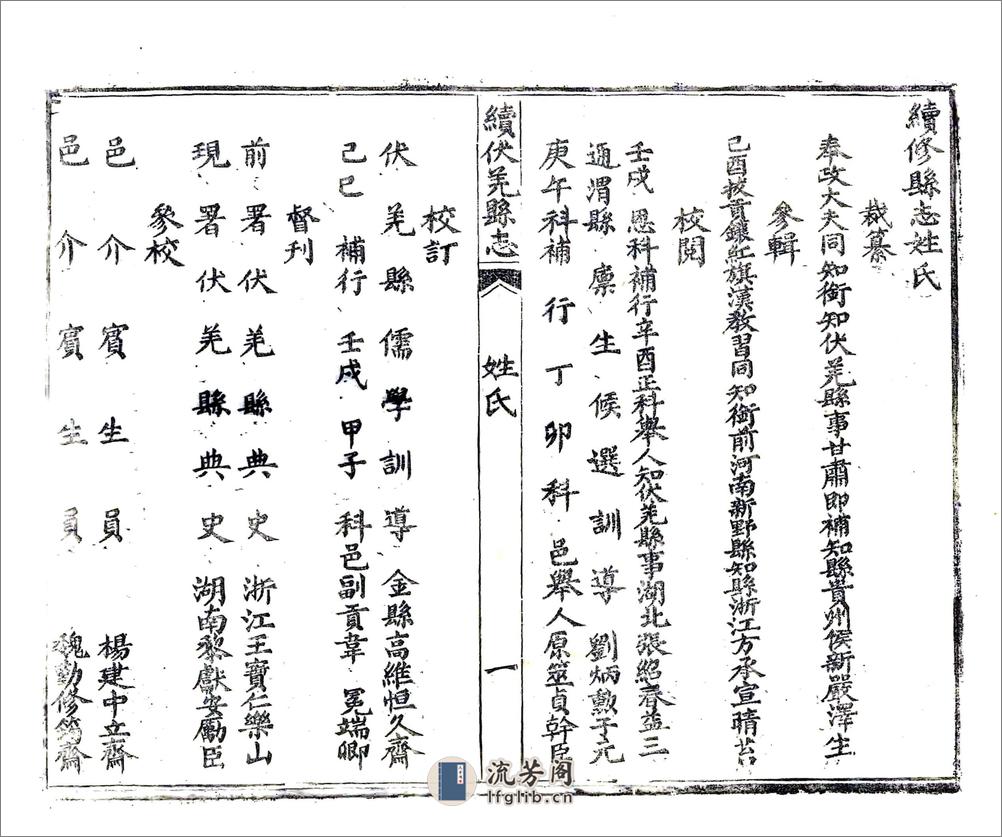 續修縣志姓氏
裁纂
奉政大夫同知銜知伏羌縣事甘肅即補知縣貴州侯新嚴澤生
參輯
己酉拔貢鑲紅旗漢教習同知銜前河南新野縣知縣浙江方承宣晴苔
校閱
壬戌恩科補行辛酉正科舉人知伏羌縣事湖北張紹春益三
通渭縣廪生候選訓導劉炳勲子元
庚午科補行丁卯科邑舉人原筮貞幹臣
續伏羌縣志
姓氏
一
校訂
伏羌縣儒學訓導金縣高維恒久齋
己巳補行壬戌甲子科邑副貢韋冕端卿
督刊
前署伏羌縣典史浙江王寶仁樂山
現署伏羌縣典史湖南黎獻安勵臣
參校
邑介賓生員楊建中立齋
邑介賓生員魏勤修筠齋
流芳阁
lfglib.cn